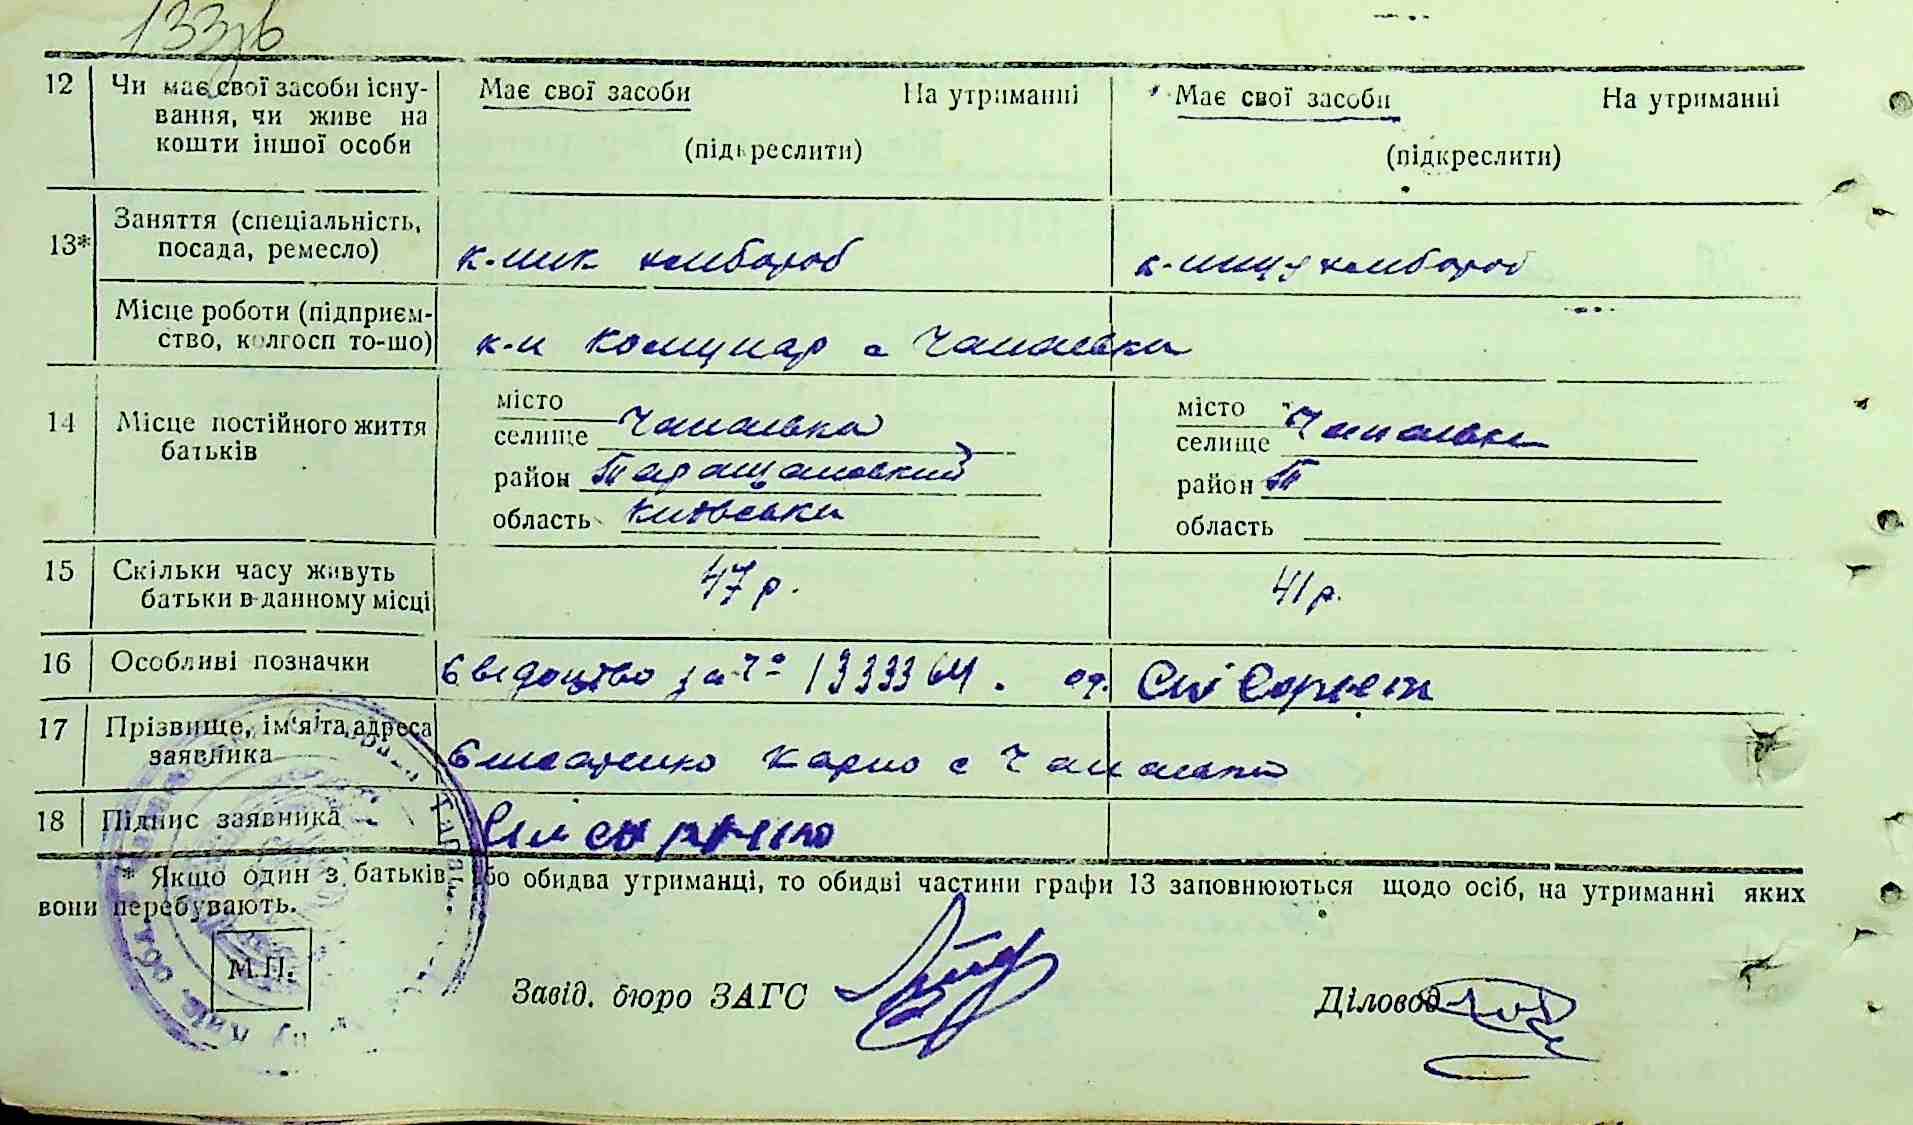 133зв
12 Чи має свої засоби існу- Має свої засоби На утриманні Має свої засоби На утриманні
вання, чи живе на
кошти іншої особи (підкреслити) (підкреслити)
13* Заняття (спеціальність,
посада, ремесло) к-ник хлибороб к-ниця хлибороб
Місце роботи (підприєм-
ство, колгосп то-що) к-п Комунар с Чапаєвка
14 Місце постійного життя місто місто
батьків селище Чапаєвка селище Чапаєвка
район Таращановский район Т
область Київська область
15 Скільки часу живуть 47 р. 41 р.
батьки в данному місці
16 Особливі позначки Сведоцтво за № 13333 од.
17 Прізвище, ім'я та адреса
заявника Карпо с Чапаєвка
18 Підпис заявника
* Якщо один з батьків або обидва утриманці, то обидві частини графи 13 заповнюються щодо осіб, на утриманні яких
вони перебувають.
М.П.
Завід. бюро ЗАГС Діловод